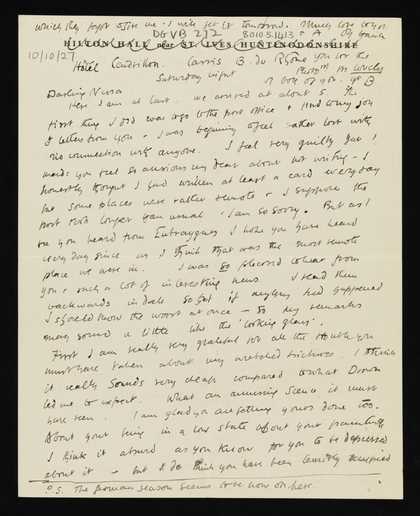 which they forgot to give me - I will get it tomorrow. Much love to you
DGVB 2/2 8010.5.1413 + A
HILTON HALL near ST. IVES HUNTINGDONSHIRE
10/10/27
Hotel Cassis B. du Rhône
Saturday night
Darling Nusa
Here I am at last. We arrived at about 5. The
first thing I did was to go to the post office + find
letters from you - I was beginning to feel rather lost with
no connection with anyone. I feel very guilty for I
made you feel so anxious my dear about not writing - I
honestly thought I had written at least a card every day
but some places were rather remote + I suppose the
post took longer than usual. I am so sorry. But as I
see you heard from Entraygues I hope you have heard
every day since as I think that was the most remote
place we were in. I was so pleased to hear from
you + such a lot of interesting news. I read them
backwards in date so that if anything had happened
I should know the worst at once - so my remarks
may sound a little like the 'looking glass'.
First I am really very grateful for all the trouble you
must have taken about my wretched
it really sounds very cheap compared to what
led me to expect. What an amusing scene it must
have been. I am glad you are getting yours done too.
About your being in a low state about your
I think it absurd as you know for you to be depressed
about it - but I do think you have been terribly
P.S. The season seems to be now on here.